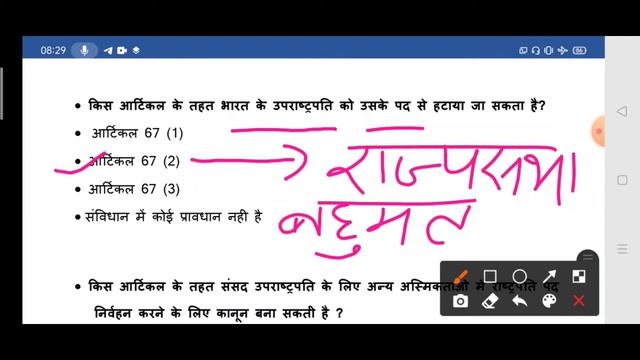 08:29
86
• किस आर्टिकल के तहत भारत के उपराष्ट्रपति को उसके पद से हटाया जा सकता है?
• आर्टिकल 67 (1)
• आर्टिकल 67 (2)
राज्यसभा
• आर्टिकल 67 (3)
बहुमत
• संविधान में कोई प्रावधान नही है
• किस आर्टिकल के तहत संसद उपराष्ट्रपति के लिए अन्य अस्मिकताओ में राष्ट्रपति पद
निर्वहन करने के लिए कानून बना सकती है ?